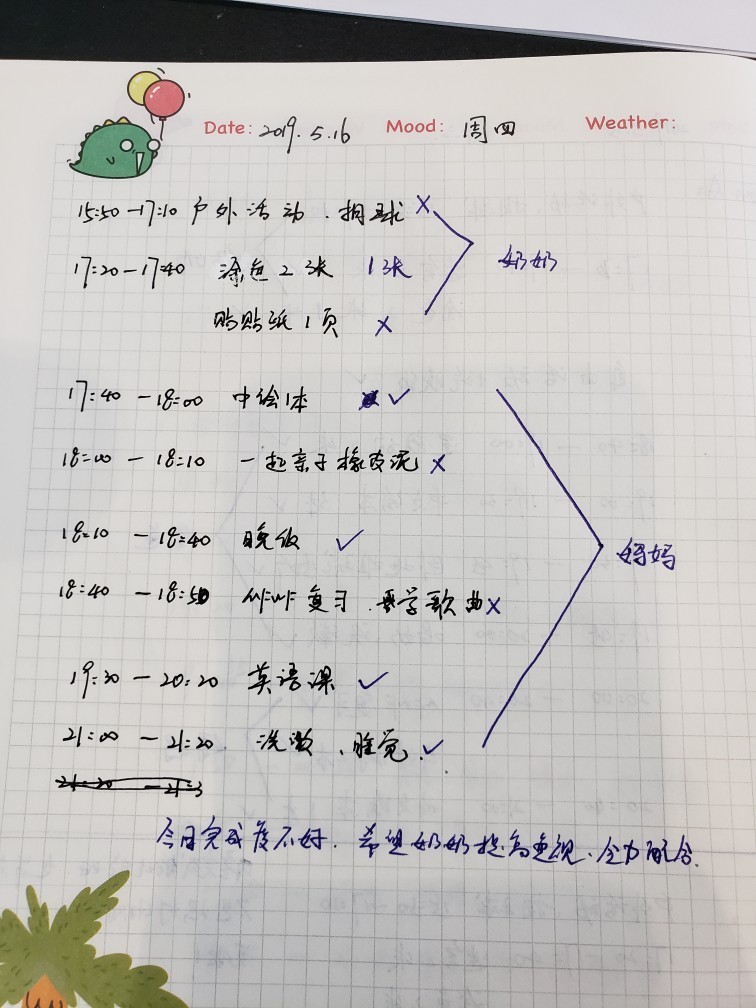 Date: 2019.5.16 Mood: 周四 Weather:
15:50-17:10 户外活动、拍球 ×
奶奶
17:20-17:40 涂色2张 1张
贴贴纸1页 ×
17:40-18:00 中绘1本 ✓
18:00-18:10 一起亲子橡皮泥 ×
18:10-18:40 晚饭 ✓
妈妈
18:40-18:50 复习、学歌曲 ×
19:30-20:20 英语课 ✓
21:00-21:20 洗漱、睡觉 ✓
今日完成度不好、希望奶奶提高重视、全力配合.